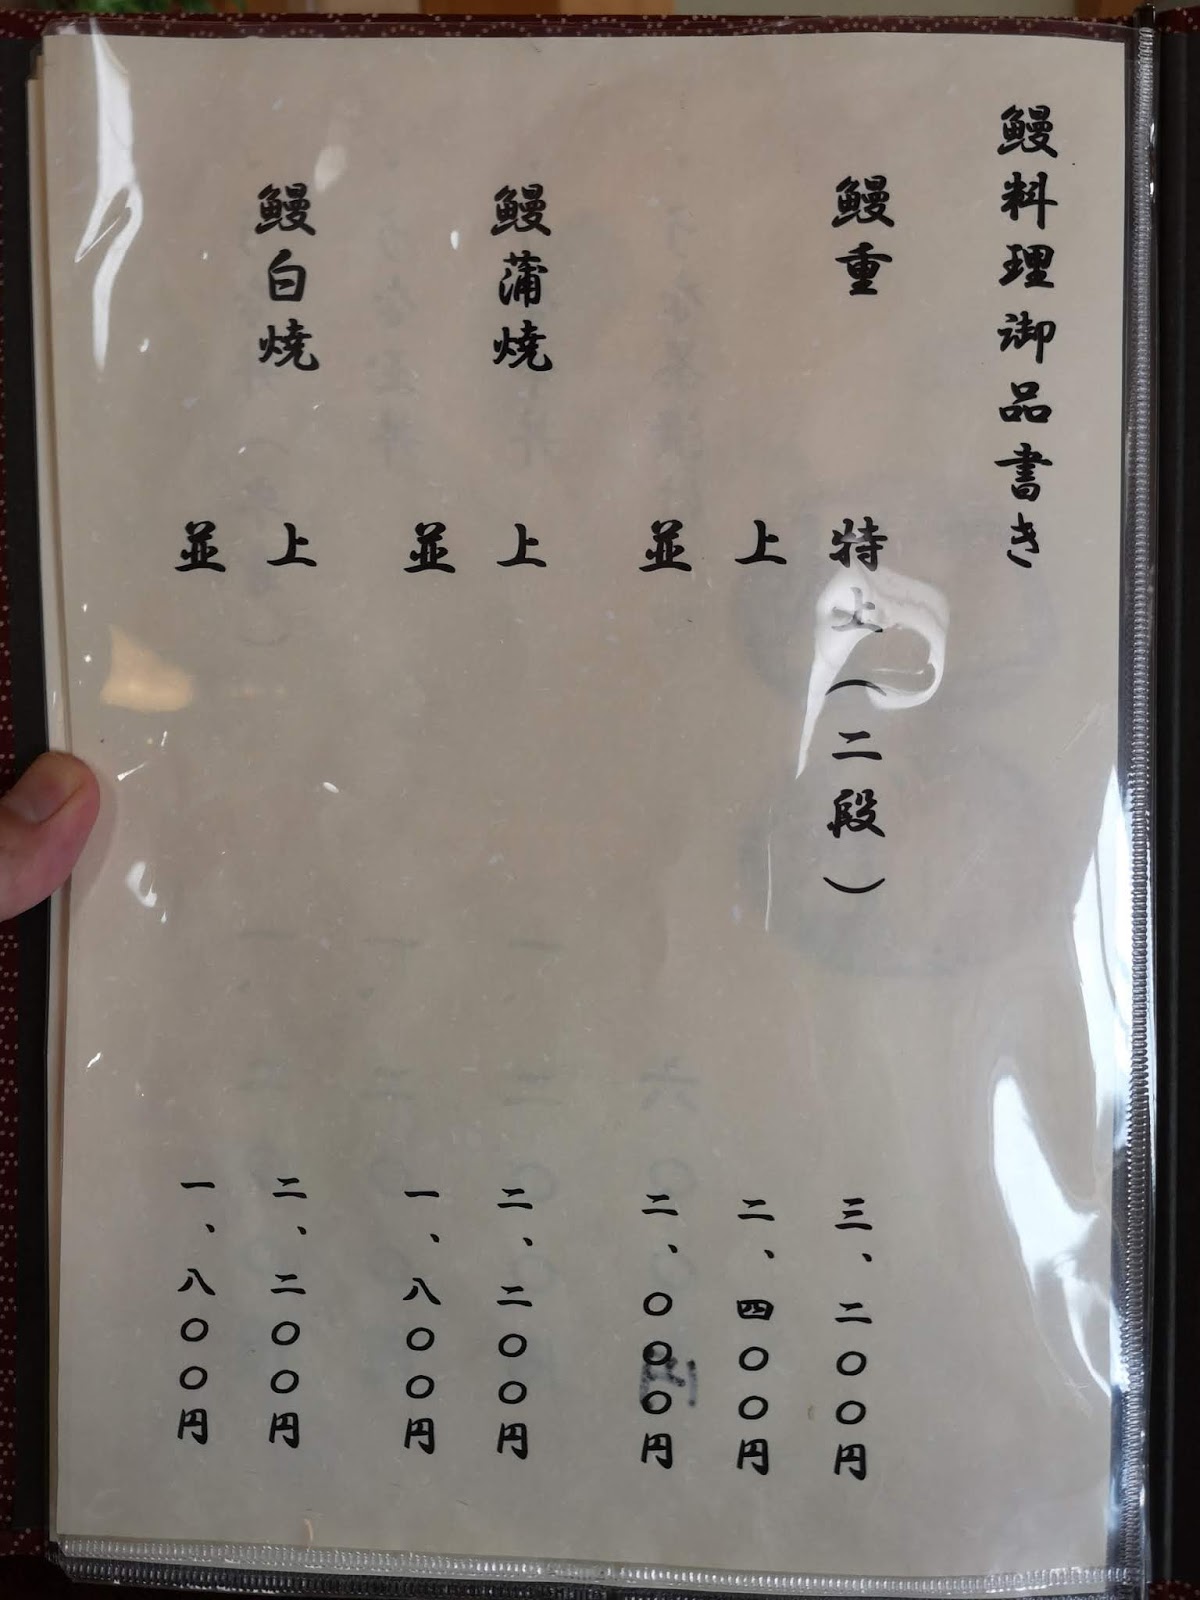 鰻料理御品書き
鰻重
特上（二段）
三、二〇〇円
上
二、四〇〇円
並
二、〇〇〇円
鰻蒲焼
上
二、二〇〇円
並
一、八〇〇円
鰻白焼
上
二、二〇〇円
並
一、八〇〇円